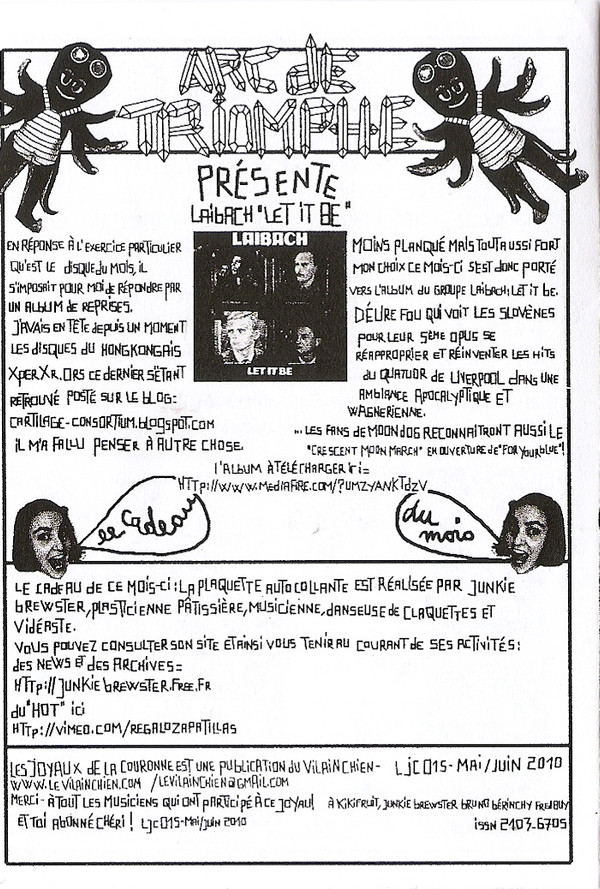 ARC DE
TRIOMPHE
PRÉSENTE
LAIBACH "LET IT BE"
EN RÉPONSE À L'EXERCICE PARTICULIER
QU'EST LE DISQUE DU MOIS, IL
S'IMPOSAIT POUR MOI DE RÉPONDRE PAR
UN ALBUM DE REPRISES.
J'AVAIS EN TÊTE DEPUIS UN MOMENT
LES DISQUES DU HONGKONGAIS
XPER XR. ORS CE DERNIER S'ÉTANT
RETROUVÉ POSTÉ SUR LE BLOG:
CARTILAGE-CONSORTIUM.blogspot.com
IL M'A FALLU PENSER À AUTRE CHOSE.
LAIBACH
LET IT BE
MOINS PLANQUÉ MAIS TOUT AUSSI FORT
MON CHOIX CE MOIS-CI S'EST DONC PORTÉ
VERS L'ALBUM DU GROUPE LAIBACH: LET IT BE.
DÉLIRE FOU QUI VOIT LES SLOVÈNES
POUR LEUR 5ÈME OPUS SE
RÉAPPROPRIER ET RÉINVENTER LES HITS
DU QUATUOR DE LIVERPOOL DANS UNE
AMBIANCE APOCALYPTIQUE ET
WAGNERIENNE.
... LES FANS DE MOONDOG RECONNAITRONT AUSSI LE
"CRESCENT MOON MARCH" EN OUVERTURE DE "FOR YOUR BLUE"!
L'ALBUM À TÉLÉCHARGER ICI=
HTTP://WWW.MEDIAFIRE.COM/?UMZYANKTdzV
le cadeau
du
mois
LE CADEAU DE CE MOIS-CI: LA PLAQUETTE AUTOCOLLANTE EST RÉALISÉE PAR JUNKIE
BREWSTER, PLASTICIENNE PÂTISSIÈRE, MUSICIENNE, DANSEUSE DE CLAQUETTES ET
VIDÉASTE.
VOUS POUVEZ CONSULTER SON SITE ET AINSI VOUS TENIR AU COURANT DE SES ACTIVITÉS:
des NEWS ET des ARCHIVES=
HTTP://JUNKIEBREWSTER.FREE.FR
du "HOT" ici
HTTP://VIMEO.COM/REGALOZAPATILLAS
LES JOYAUX DE LA COURONNE EST UNE PUBLICATION DU VILAIN CHIEN- LJC015- MAI/JUIN 2010
WWW.LEVILAINCHIEN.COM /LEVILAINCHIEN@GMAIL.COM
MERCI- À TOUT LES MUSICIENS QUI ONT PARTICIPÉ À CE JOYAU! À KIKIFRUIT, JUNKIE BREWSTER BRUNO BÉRINCHY
ET TOI ABONNÉ CHÉRI! LJC015-MAI/JUIN 2010 ISSN 2103-6705